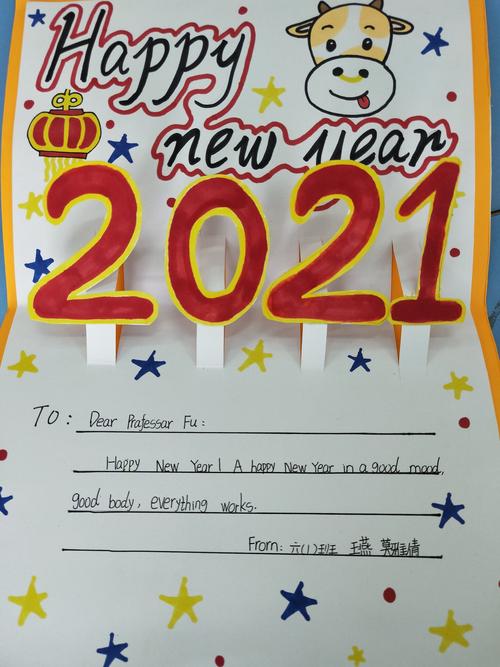 Happy
new year
2021
TO: Dear Prafessar Fu:
Happy New Year! A happy New Year in a good mood,
good body, everything works.
From: 六(1)班 王燕 莫雅倩